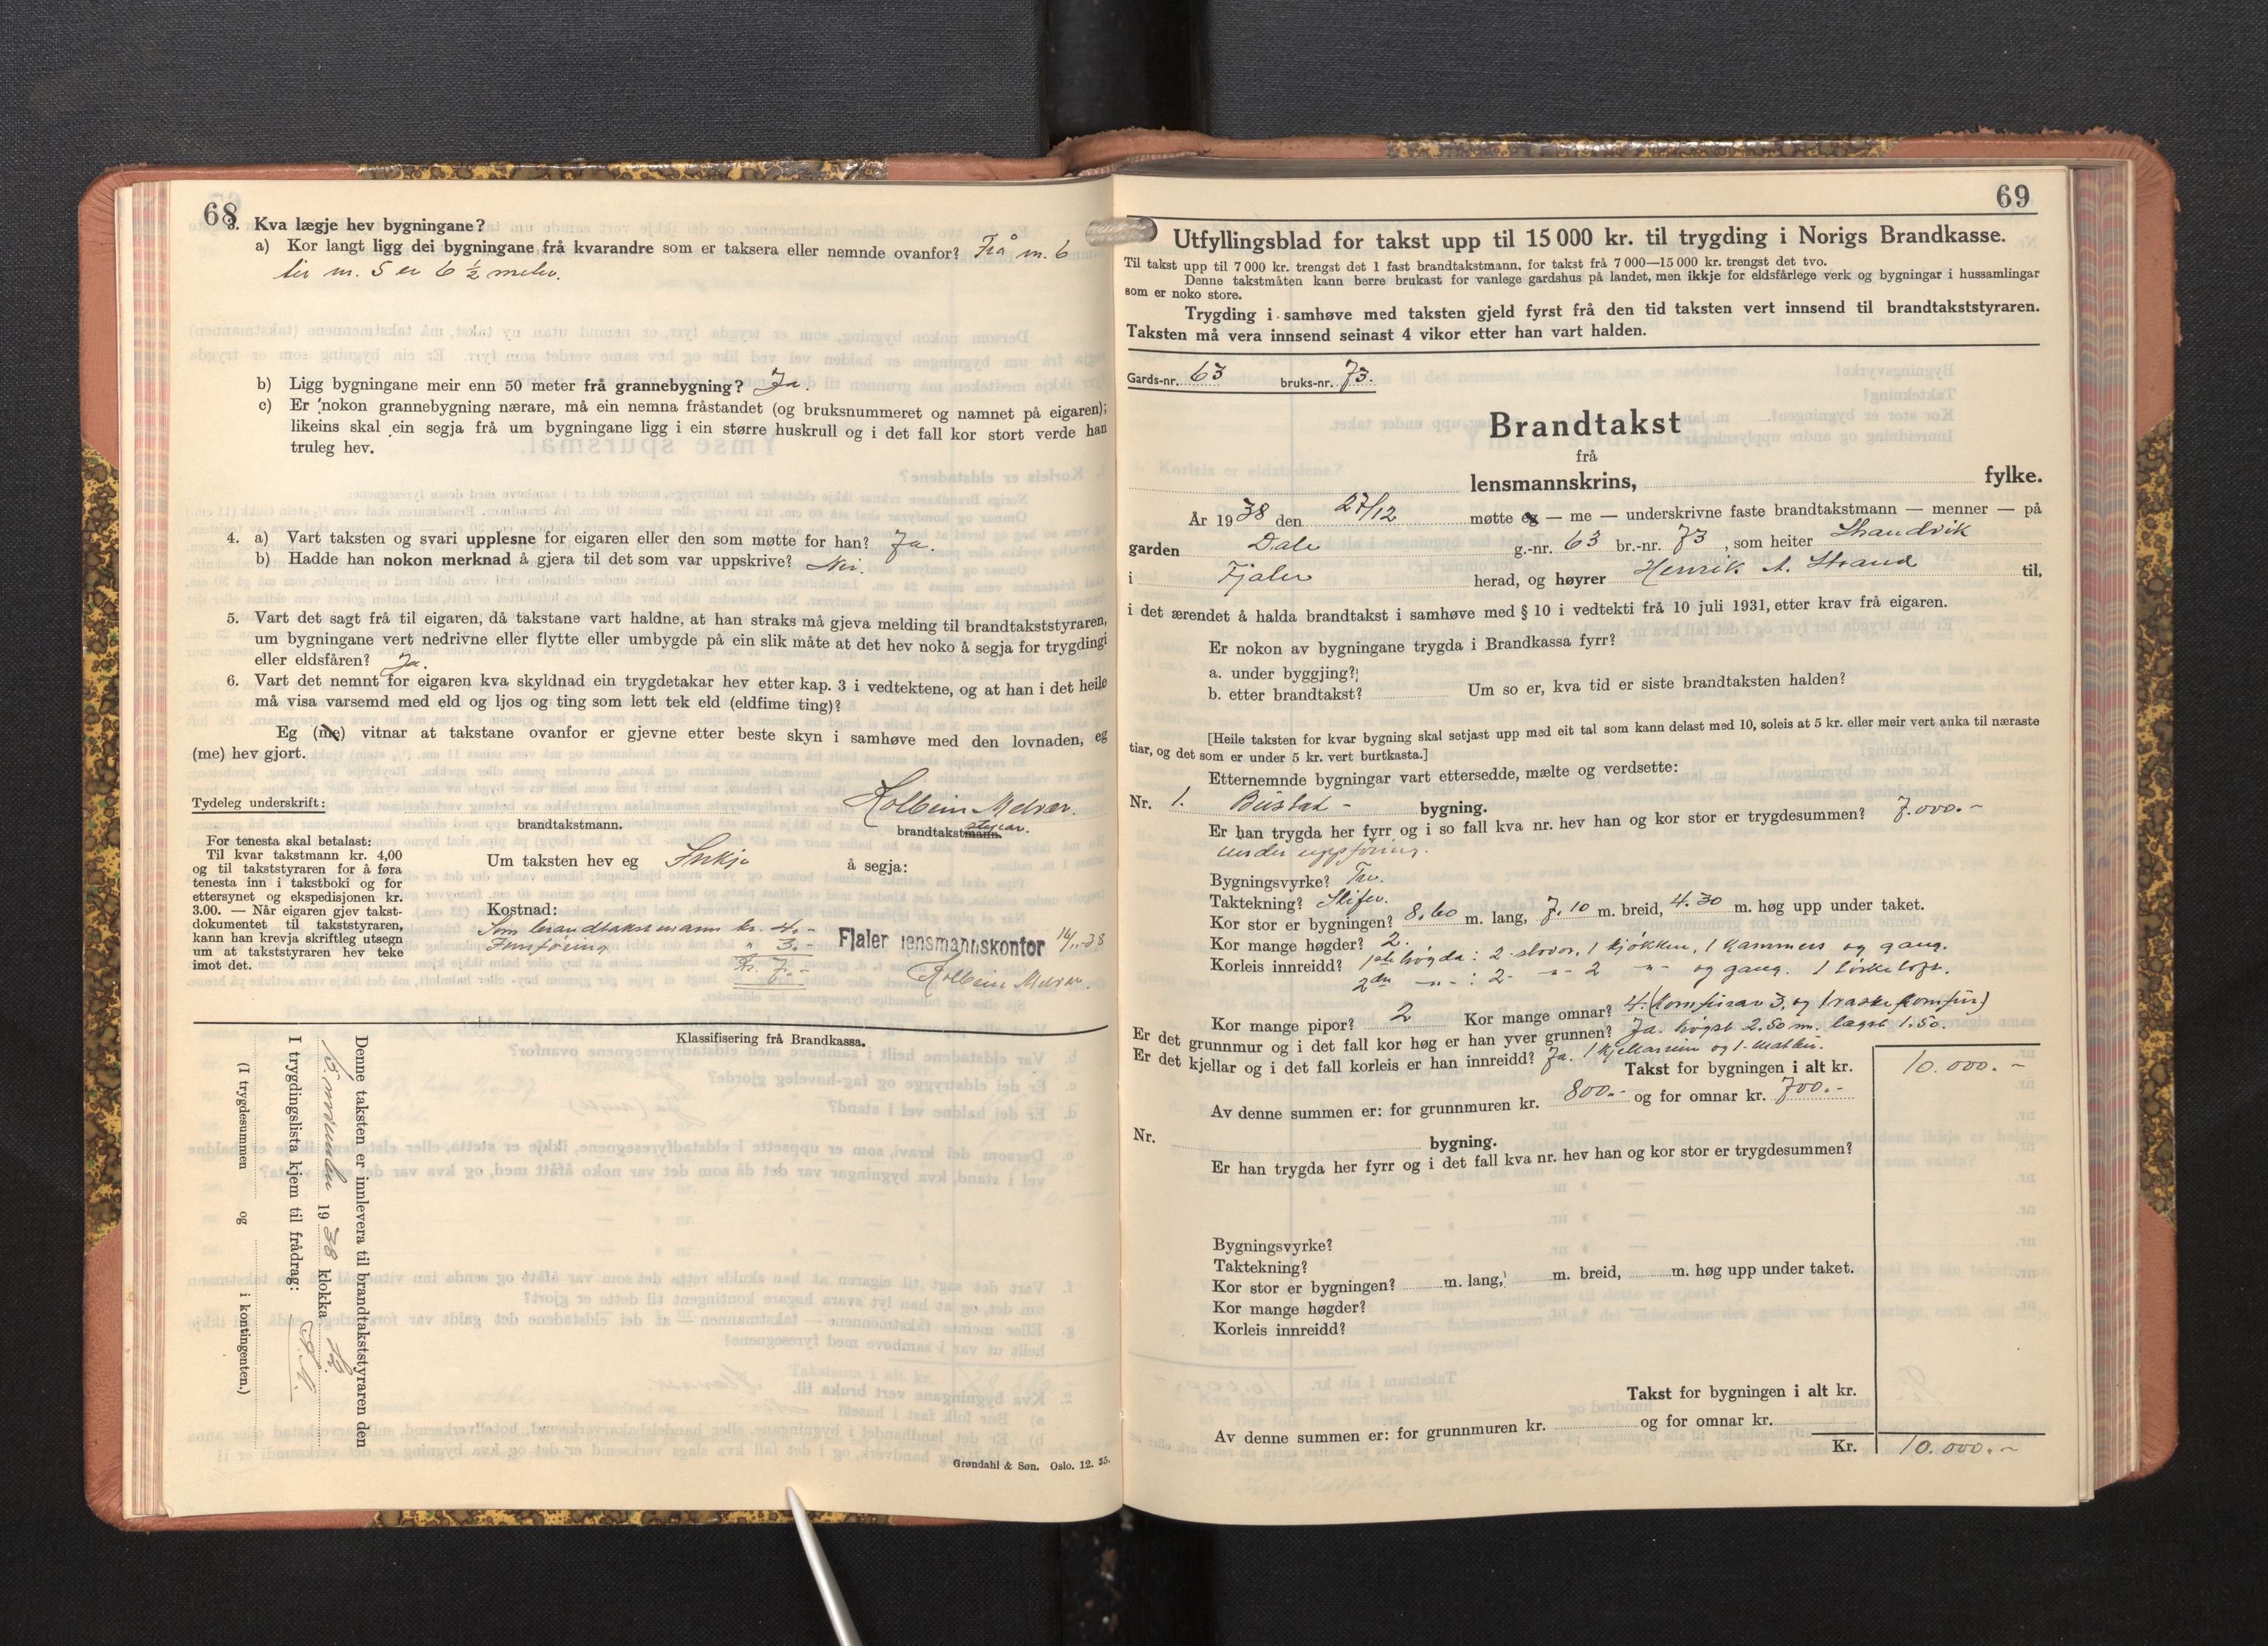 68
3. Kva lægje hev bygningane?
a) Kor langt ligg dei bygningane frå kvarandre som er taksera eller nemnde ovanfor? Frå m. 6
til m. 5 er 6 ½ meter.
b) Ligg bygningane meir enn 50 meter frå grannebygning? Ja.
c) Er nokon grannebygning nærare, må ein nemna fråstandet (og bruksnummeret og namnet på eigaren);
likeins skal ein segja frå um bygningane ligg i ein større huskrull og i det fall kor stort verde han
truleg hev.
4. a) Vart taksten og svari upplesne for eigaren eller den som møtte for han? Ja.
b) Hadde han nokon merknad å gjera til det som var uppskrive? Nei.
5. Vart det sagt frå til eigaren, då takstane vart haldne, at han straks må gjeva melding til brandtakststyraren,
um bygningane vert nedrivne eller flytte eller umbygde på ein slik måte at det hev noko å segja for trygdingi
eller eldsfåren? Ja.
6. Vart det nemnt for eigaren kva skyldnad ein trygdetakar hev etter kap. 3 i vedtektene, og at han i det heile
må visa varsemd med eld og ljos og ting som lett tek eld (eldfime ting)?
Eg (me) vitnar at takstane ovanfor er gjevne etter beste skyn i samhøve med den lovnaden, eg
(me) hev gjort.
Tydeleg underskrift:
Kolbein Melvær.
brandtakstmann.
brandtakstmann. styrar.
For tenesta skal betalast:
Til kvar takstmann kr. 4,00
og til takststyraren for å føra
tenesta inn i takstboki og for
ettersynet og ekspedisjonen kr.
3.00. — Når eigaren gjev takst-
dokumentet til takststyraren,
kann han krevja skriftleg utsegn
um at takststyraren hev teke
imot det.
Um taksten hev eg Inkje å segja:
Kostnad:
Som brandtakstmann kr. 4.-
Jemføring " 3.-
Kr. 7.-
Fjaler lensmannskontor 14/11-38
Kolbein Melvær.
Klassifisering frå Brandkassa.
Denne taksten er innlevera til brandtakststyraren den
15. november 1938 klokka 12.
I trygdingslista kjem til frådrag: K.M.
(I trygdesummen og i kontingenten.)
Grøndahl & Søn. Oslo. 12. 35.
69
Utfyllingsblad for takst upp til 15 000 kr. til trygding i Norigs Brandkasse.
Til takst upp til 7 000 kr. trengst det 1 fast brandtakstmann, for takst frå 7 000—15 000 kr. trengst det tvo.
Denne takstmåten kann berre brukast for vanlege gardshus på landet, men ikkje for eldsfårlege verk og bygningar i hussamlingar
som er noko store.
Trygding i samhøve med taksten gjeld fyrst frå den tid taksten vert innsend til brandtakststyraren.
Taksten må vera innsend seinast 4 vikor etter han vart halden.
Gards-nr. 63 bruks-nr. 73.
Brandtakst
frå
lensmannskrins, fylke.
År 1938 den 27/12 møtte eg — me — underskrivne faste brandtakstmann — menner — på
garden Dale g.-nr. 63 br.-nr. 73, som heiter Strandvik
i Fjaler herad, og høyrer Henrik A. Strand til,
i det ærendet å halda brandtakst i samhøve med § 10 i vedtekti frå 10 juli 1931, etter krav frå eigaren.
Er nokon av bygningane trygda i Brandkassa fyrr?
a. under byggjing?
b. etter brandtakst? Um so er, kva tid er siste brandtaksten halden?
[Heile taksten for kvar bygning skal setjast upp med eit tal som kann delast med 10, soleis at 5 kr. eller meir vert auka til næraste
tiar, og det som er under 5 kr. vert burtkasta.]
Etternemnde bygningar vart ettersedde, mælte og verdsette:
Nr. 1. Bustad - bygning.
Er han trygda her fyrr og i so fall kva nr. hev han og kor stor er trygdesummen? 7.000.-
under uppføring.
Bygningsvyrke? Tre.
Taktekning? Skifer.
Kor stor er bygningen? 8.60 m. lang, 7.10 m. breid, 4.30 m. høg upp under taket.
Kor mange høgder? 2.
Korleis innreidd? 1ste høgda: 2 stovor, 1 kjøkken, 1 kammers og gang.
2dre -"- : 2 -"- 2 -"- og gang. 1 tørkeloft.
Kor mange pipor? 2 Kor mange omnar? 4. (komfirar 3, og 1 vaskekomfir)
Er det grunnmur og i det fall kor høg er han yver grunnen? Ja. høgst 2.50 m. lægst 1.50.
Er det kjellar og i det fall korleis er han innreidd? Ja. 1 kjellarrum og 1 matbu.
Takst for bygningen i alt kr. 10.000.-
Av denne summen er: for grunnmuren kr. 800.- og for omnar kr. 700.-
Nr. bygning.
Er han trygda her fyrr og i det fall kva nr. hev han og kor stor er trygdesummen?
Bygningsvyrke?
Taktekning?
Kor stor er bygningen? m. lang, m. breid, m. høg upp under taket.
Kor mange høgder?
Korleis innreidd?
Takst for bygningen i alt kr.
Av denne summen er: for grunnmuren kr. og for omnar kr.
Kr. 10.000.-